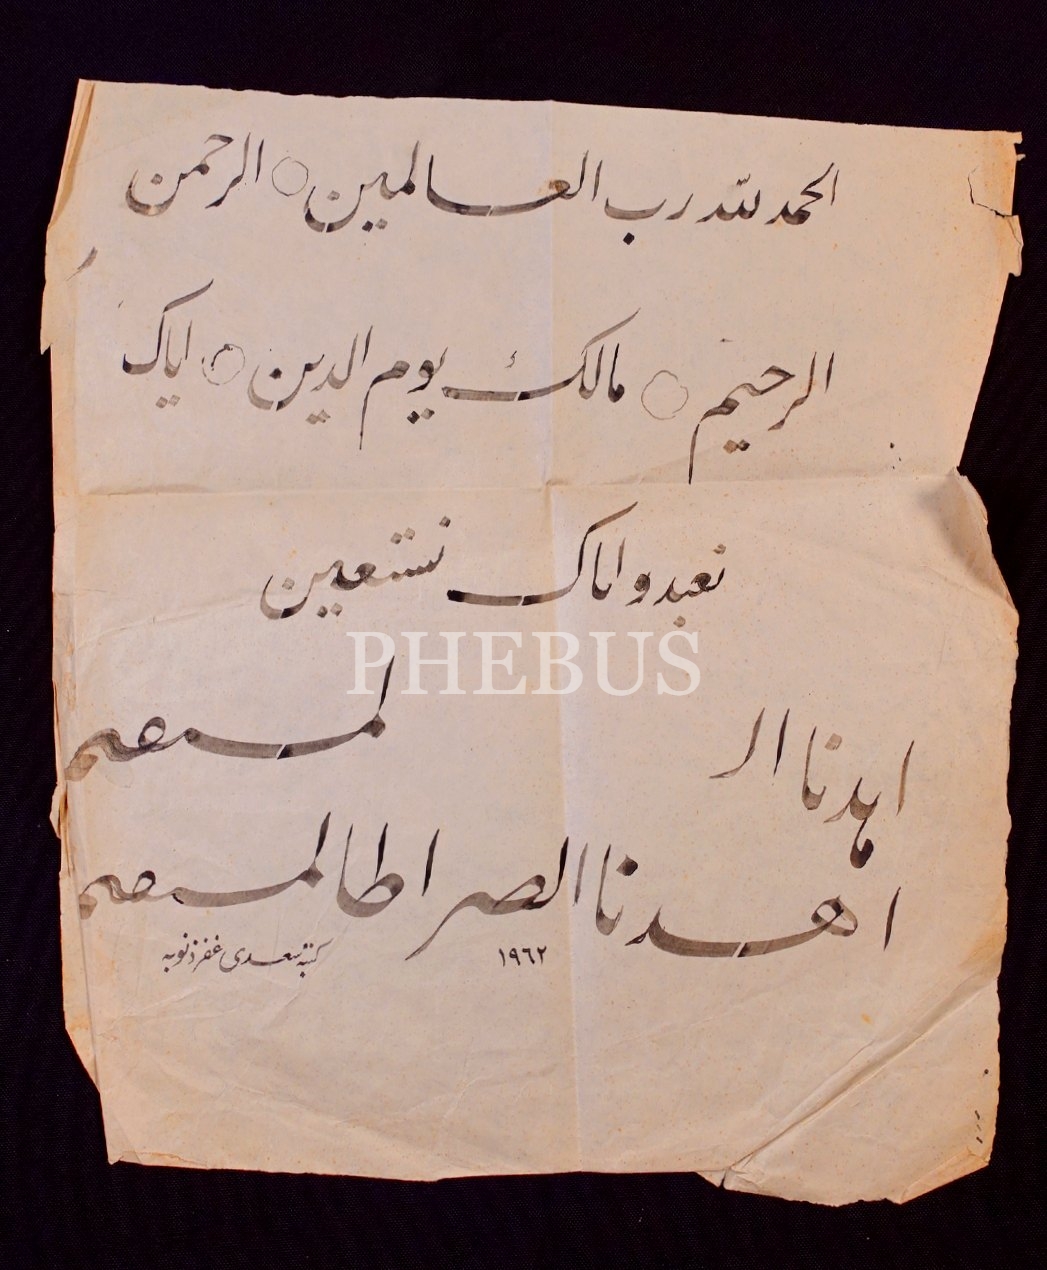 الحمد لله رب العالمين ○ الرحمن
الرحيم ○ مالك يوم الدين ○ اياك
نعبد و اياك نستعين
PHEBUS
اهدنا ا لمستقيم
اهدنا الصراط المستقيم
١٩٦٢ كتبه سعدى غفر ذنوبه